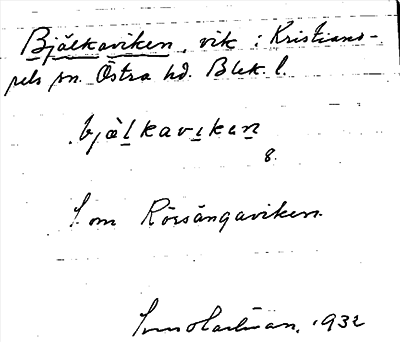 Bjälkaviken, vik i Kristiano-
pels sn. Östra hd. Blek. l.
bjälkavikən
8.
S. om Rörsängaviken.
1932